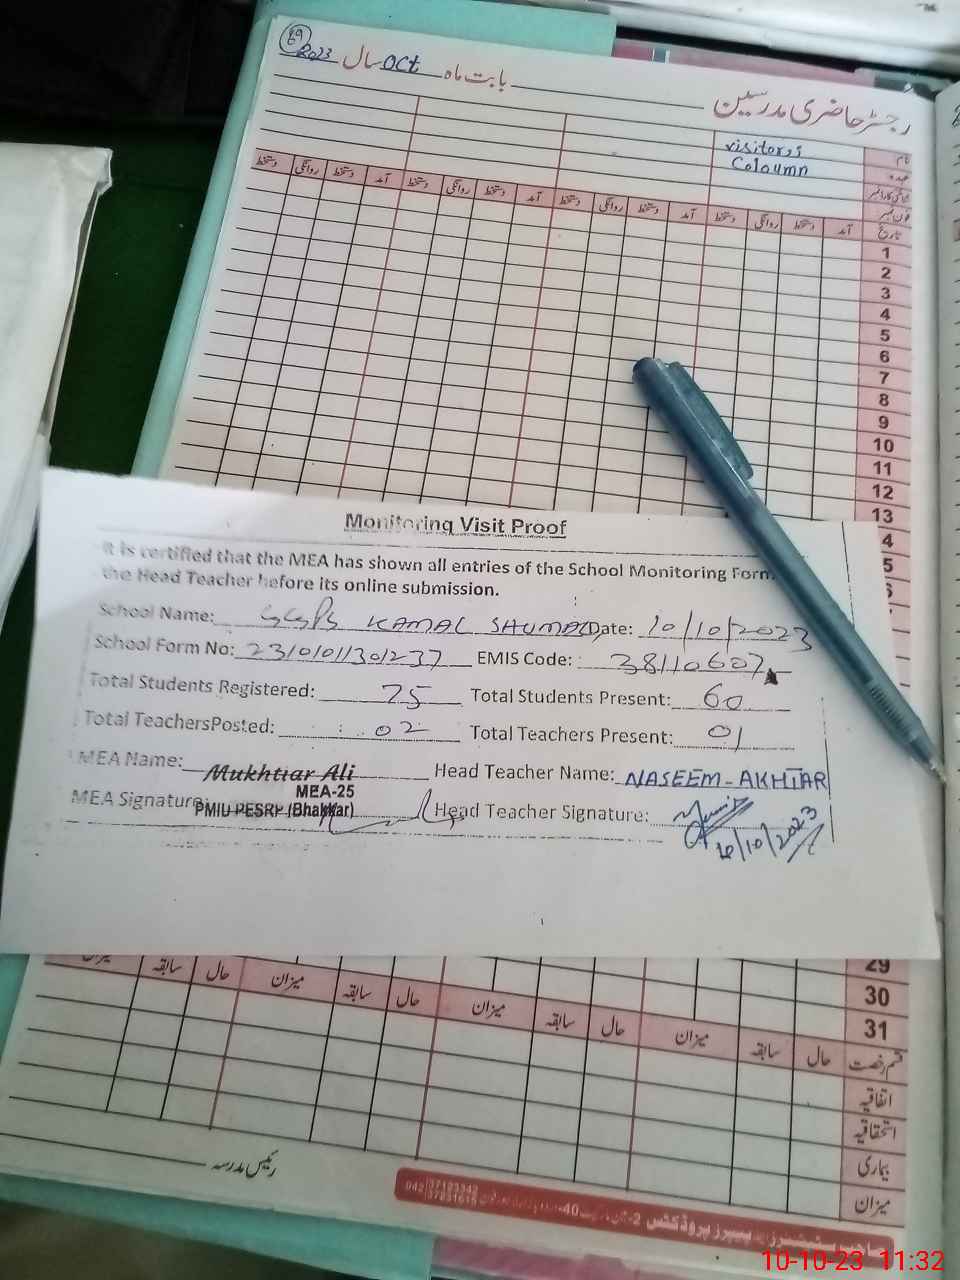 رجسٹر حاضری مدرسین
بابت ماہ Oct سال 2023
نام
visitors
عہدہ
Coloumn
شناختی کارڈ نمبر
فون نمبر
تاریخ آمد دستخط روانگی دستخط آمد دستخط روانگی دستخط آمد دستخط روانگی دستخط آمد دستخط روانگی دستخط
1
2
3
4
5
6
7
8
9
10
11
12
13
4
5
Monitoring Visit Proof
It is certified that the MEA has shown all entries of the School Monitoring Form
the Head Teacher before its online submission.
School Name: GGPS KAMAL SHUMALI Date: 10/10/2023
School Form No: 2310101301237 EMIS Code: 38110607
Total Students Registered: 75 Total Students Present: 60
Total TeachersPosted: 02 Total Teachers Present: 01
MEA Name: Mukhtiar Ali Head Teacher Name: NASEEM-AKHTAR
MEA-25
MEA Signature: PMIU PESRP (Bhakkar) Head Teacher Signature:
10/10/2023
29
30
31
قسم رخصت حال سابقہ میزان حال سابقہ میزان حال سابقہ میزان حال سابقہ میزان
اتفاقیہ
استحقاقیہ
بیماری
میزان
رئیس مدرسہ
10-10-23 11:32